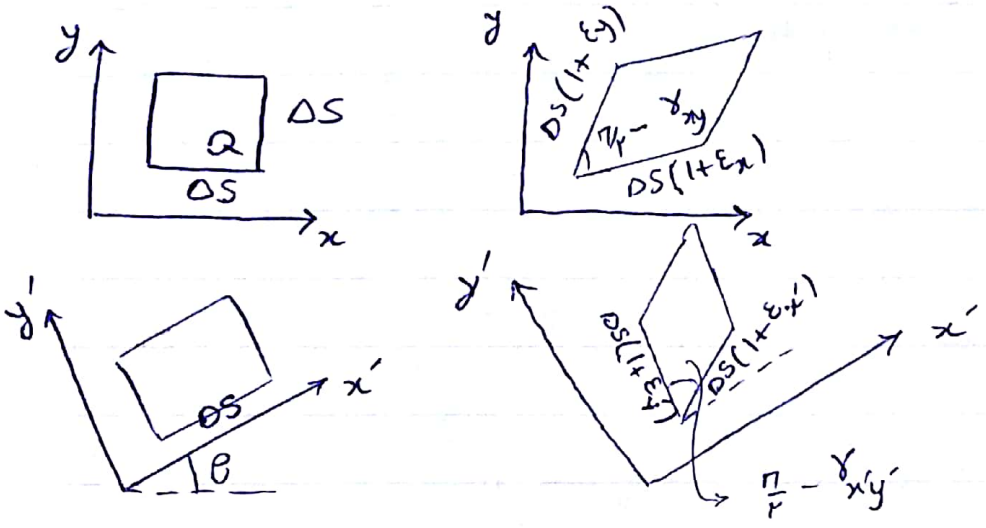 y
ΔS
Q
ΔS
x
y
ΔS(1+εy)
π/۲ − γxy
ΔS(1+εx)
x
y'
x'
ΔS
θ
y'
x'
ΔS(1+εy')
ΔS(1+εx')
π/۲ − γx'y'